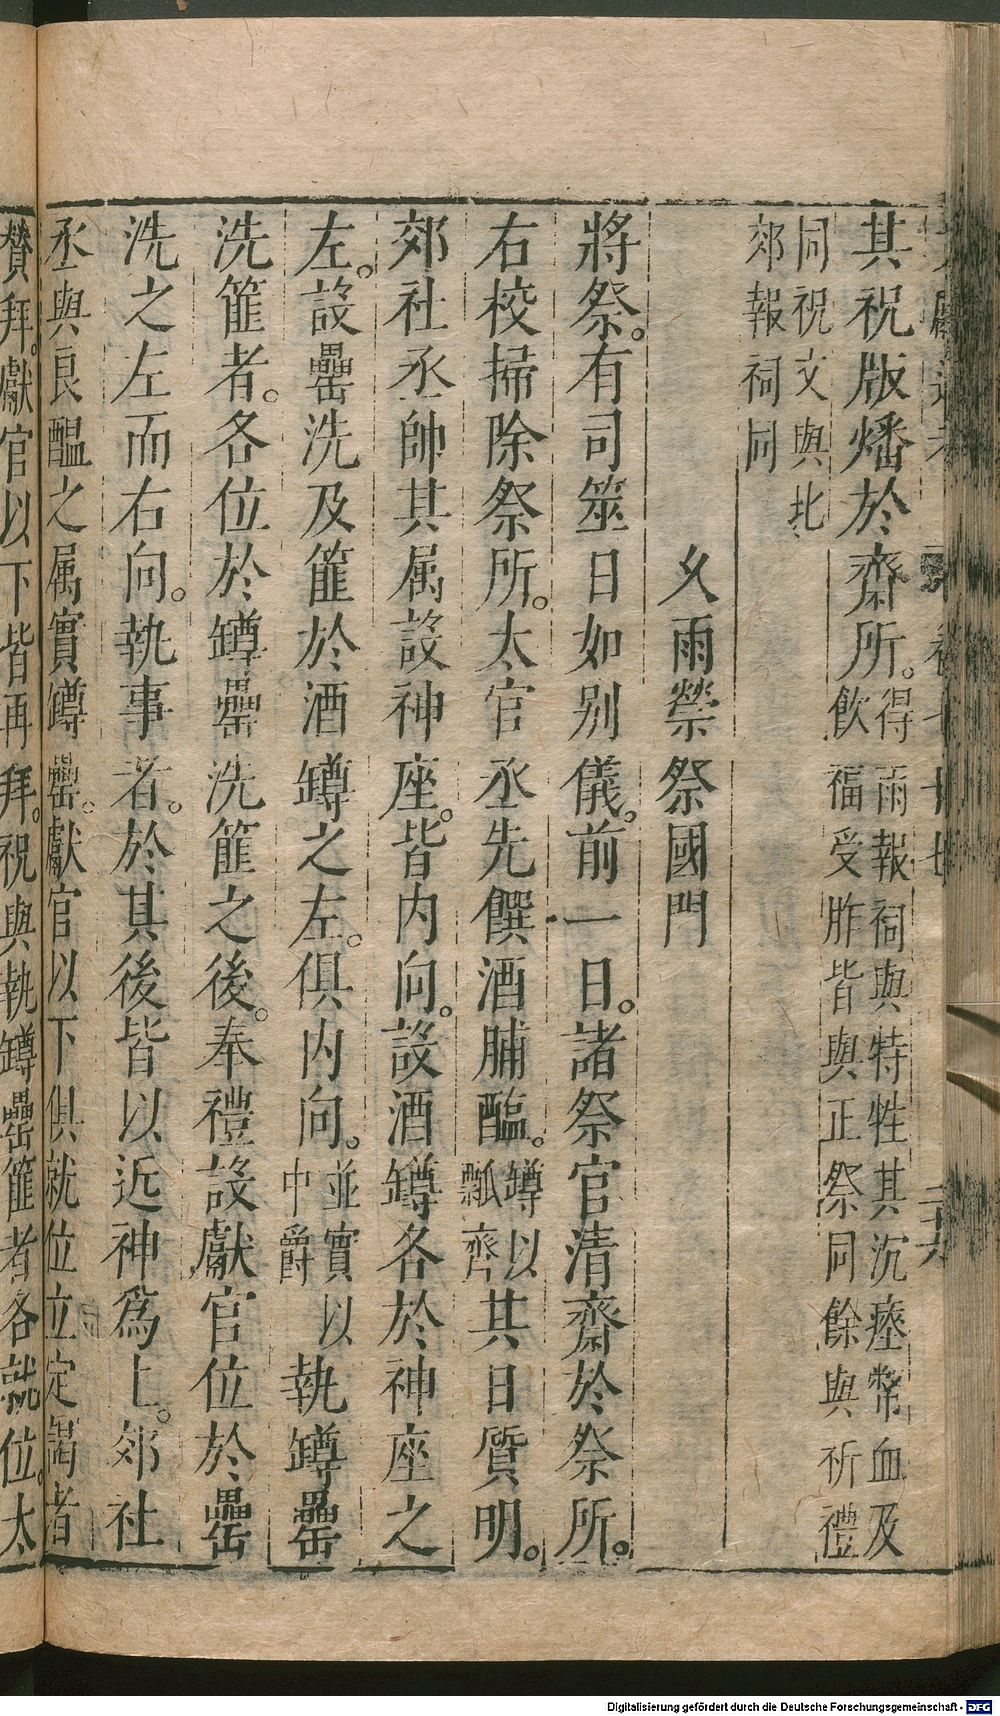 其祝版燔於齋所。得雨報祠與特牲其沉瘞幣血及
飲福受胙皆與正祭同餘與祈禮
同祝文與北
郊報祠同
久雨禜祭國門
將祭。有司筮日如別儀。前一日。諸祭官清齋於祭所。
右校掃除祭所。太官丞先饌酒脯醢。罇以
瓢齊其日質明。
郊社丞帥其属設神座。皆内向。設酒罇各於神座之
左。設罍洗及篚於酒罇之左。俱内向。並實以
中爵執罇罍
洗篚者。各位於罇罍洗篚之後。奉禮設獻官位於罍
洗之左而右向。執事者。於其後皆以近神爲上。郊社
丞與良醖之属實罇罍。獻官以下俱就位立定謁者
賛拜。獻官以下皆再拜。祝與執罇罍篚者各就位。太
Digitalisierung gefördert durch die Deutsche Forschungsgemeinschaft - DFG